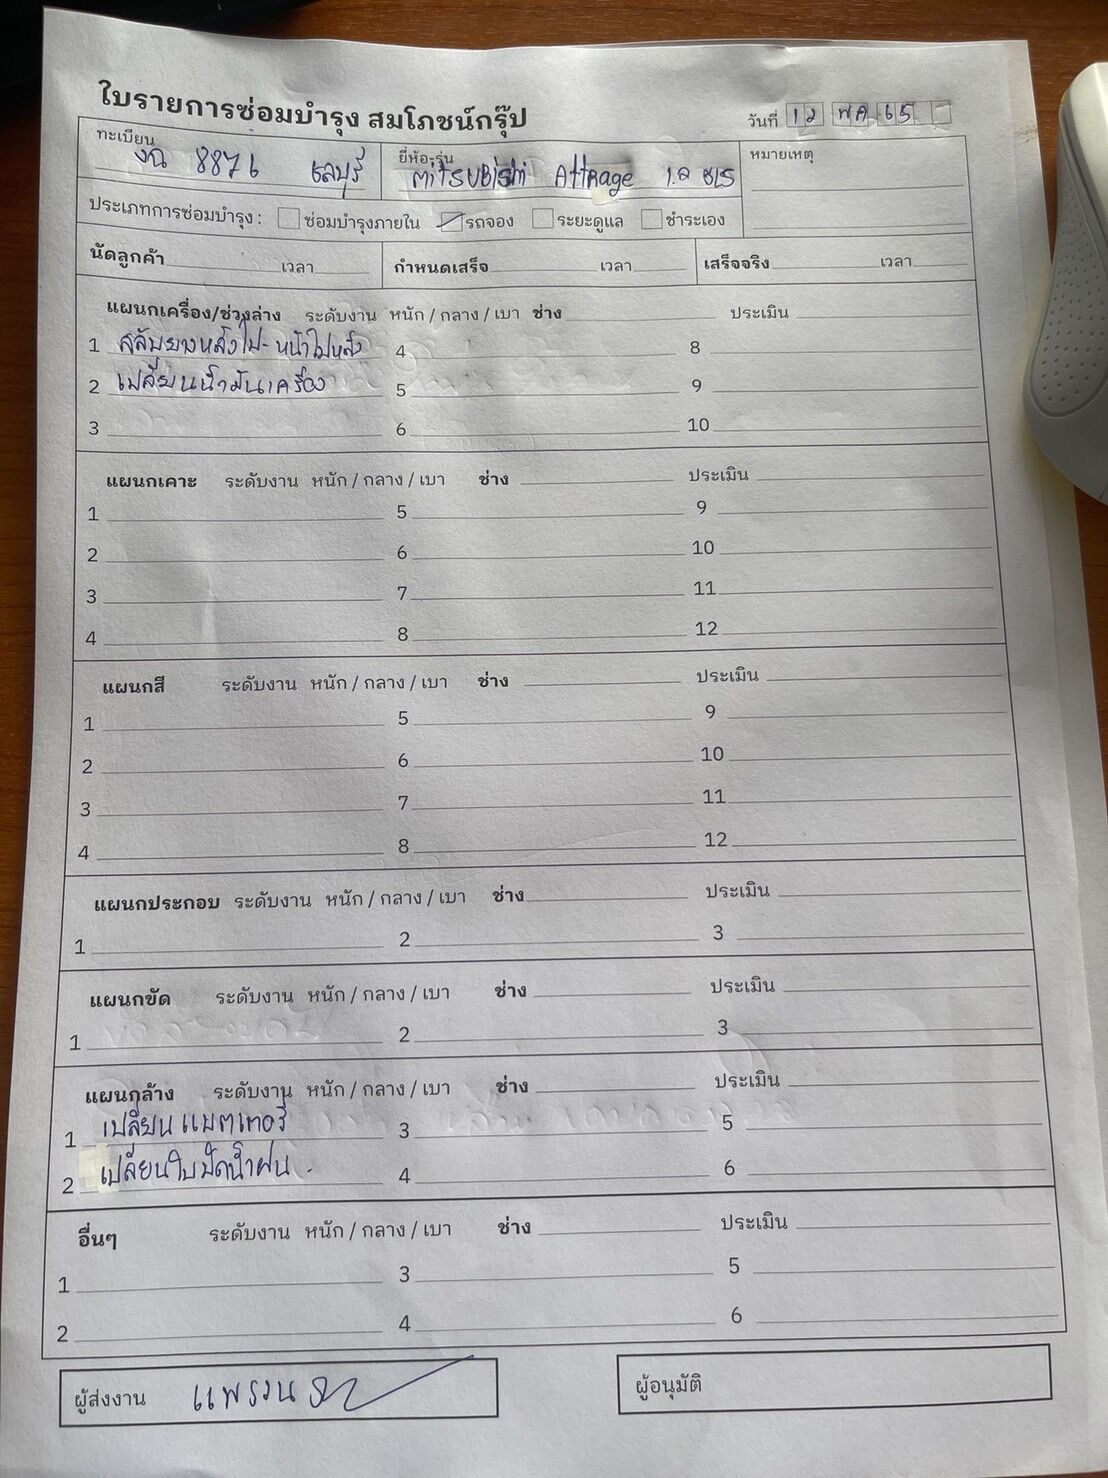 ใบรายการซ่อมบำรุง สมโภชน์กรุ๊ป
วันที่ 12 พค 65
ทะเบียน ยี่ห้อ-รุ่น หมายเหตุ
8876 ชลบุรี Mitsubishi Attrage 1.2
ประเภทการซ่อมบำรุง : ซ่อมบำรุงภายใน รถจอง ระยะดูแล ชำระเอง
นัดลูกค้า เวลา กำหนดเสร็จ เวลา เสร็จจริง เวลา
แผนกเครื่อง/ช่วงล่าง ระดับงาน หนัก / กลาง / เบา ช่าง ประเมิน
1 สลับยางหลังไป-หน้าไปหลัง 4 8
2 เปลี่ยนน้ำมันเครื่อง 5 9
3 6 10
แผนกเคาะ ระดับงาน หนัก / กลาง / เบา ช่าง ประเมิน
1 5 9
2 6 10
3 7 11
4 8 12
แผนกสี ระดับงาน หนัก / กลาง / เบา ช่าง ประเมิน
1 5 9
2 6 10
3 7 11
4 8 12
แผนกประกอบ ระดับงาน หนัก / กลาง / เบา ช่าง ประเมิน
1 2 3
แผนกขัด ระดับงาน หนัก / กลาง / เบา ช่าง ประเมิน
1 2 3
แผนกล้าง ระดับงาน หนัก / กลาง / เบา ช่าง ประเมิน
1 เปลี่ยนแบตเตอรี่ 3 5
2 เปลี่ยนใบปัดน้ำฝน . 4 6
อื่นๆ ระดับงาน หนัก / กลาง / เบา ช่าง ประเมิน
1 3 5
2 4 6
ผู้ส่งงาน ผู้อนุมัติ